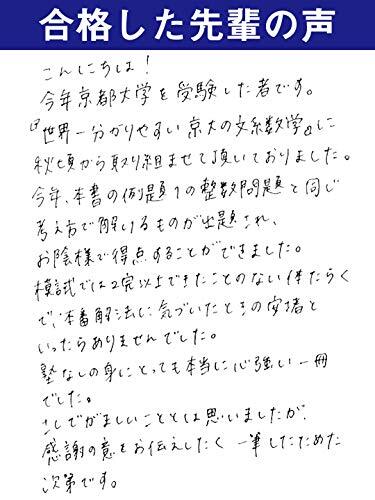 合格した先輩の声
こんにちは！
今年京都大学を受験した者です。
『世界一分かりやすい京大の文系数学』に
秋頃から取り組ませて頂いておりました。
今年、本書の例題1の整数問題と同じ
考え方で解けるものが出題され、
お陰様で得点することができました。
模試では2完以上できたことのない体たらく
で、本番解法に気づいたときの安堵と
いったらありませんでした。
塾なしの身にとっても本当に心強い一冊
でした。
さしでがましいこととは思いましたが、
感謝の意をお伝えしたく一筆したためた
次第です。